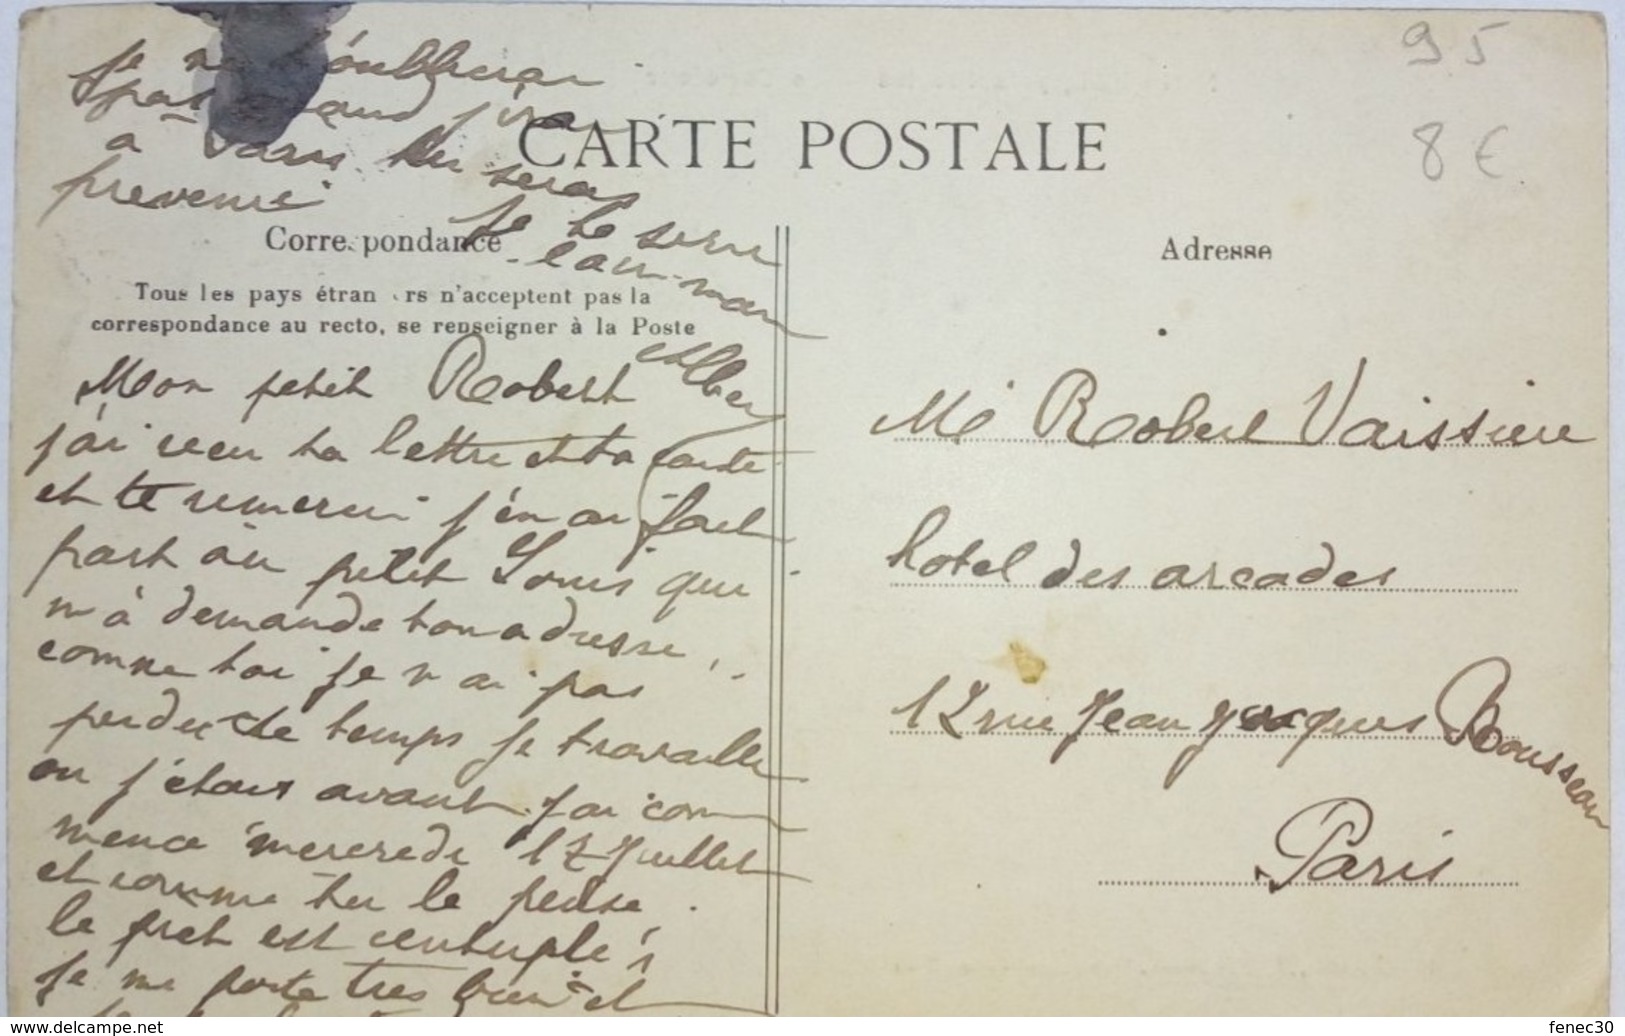 95
8 €
je ne t'oublierai
pas quand j'irai
à Paris tu seras
prevenu
je te serre
la main
Albert
CARTE POSTALE
Correspondance
Tous les pays étrangers n'acceptent pas la
correspondance au recto, se renseigner à la Poste
Mon petit Robert
j'ai recu ta lettre et ta carte
et te remercie j'en ai fait
part au petit Louis qui
m'à demande ton adresse,
comme toi je n'ai pas
perdu de temps je travaille
ou j'étais avant j'ai com
mencé mercredi 17 Juillet
et comme tu le pense
le pret est centuplé
je me porte tres bien et
Adresse
Mr Robert Vaissiere
hotel des arcades
12 rue Jean Jacques Rousseau
Paris
www.delcampe.net
fenec30